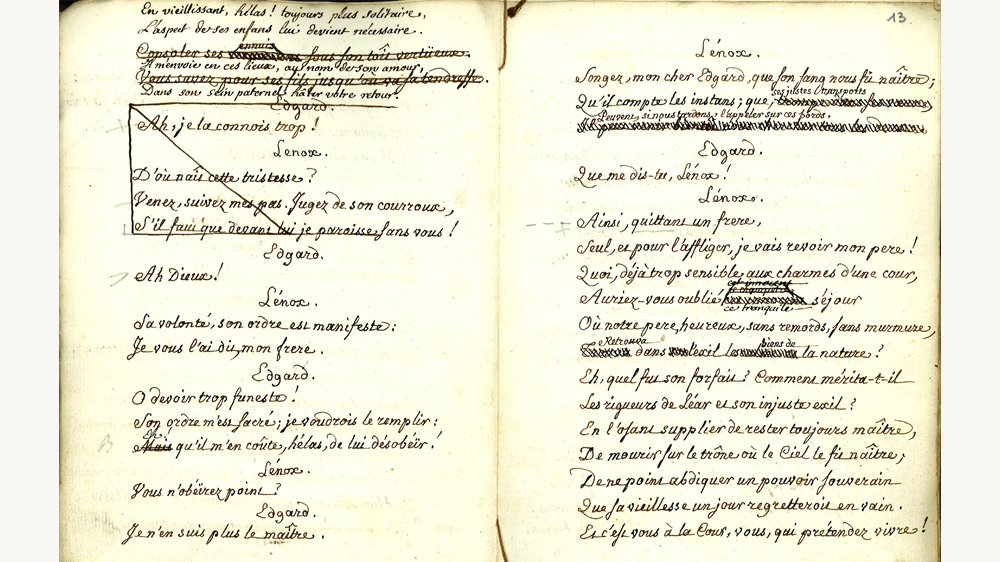 En vieillissant, hélas! toujours plus solitaire,
L'aspect de ses enfans lui devient nécessaire.
ennuis
Consoler ses sous son toît vertüeux.
M'envoie en ces lieux, au nom de son amour,
Vous savez pour ses fils jusqu'où va sa tendresse.
Dans son sein paternel hâter votre retour.
Edgard.
Ah, je la connois trop!
Lénox.
D'où naît cette tristesse?
Venez, suivez mes pas. Jugez de son courroux,
S'il faut que devant lui je paroisse sans vous!
Edgard.
Ah Dieux!
Lénox.
Sa volonté, son ordre est manifeste:
Je vous l'ai dit, mon frere.
Edgard.
O devoir trop funeste!
Son ordre m'est sacré; je voudrois le remplir:
Eh
Mais qu'il m'en coûte, hélas, de lui désobéïr!
Lénox.
Vous n'obéïrez point?
Edgard.
Je n'en suis plus le maître.
13.
Lénox.
Songez, mon cher Edgard, que son sang nous fit naître;
ses justes transports
Qu'il compte les instans; que,
Peuvent, si nous tardons, l'appeler sur ces bords.
Edgard.
Que me dis-tu, Lénox!
Lénox.
Ainsi, quittant un frere,
Seul, et pour l'affliger, je vais revoir mon pere!
Quoi, déjà trop sensible aux charmes d'une cour,
cet innocent
le champêtre
Auriez-vous oublié séjour
ce tranquile
Où notre pere, heureux, sans remords, sans murmure,
Retrouva biens de
dans l'exil les la nature?
Eh, quel fut son forfait? Comment mérita-t-il
Les rigueurs de Léar et son injuste exil?
En l'osant supplier de rester toujours maître,
De mourir sur le trône où le Ciel le fit naître;
De ne point abdiquer un pouvoir souverain
Que sa vieillesse un jour regretteroit en vain.
Et c'est vous à la Cour, vous, qui prétendez vivre!